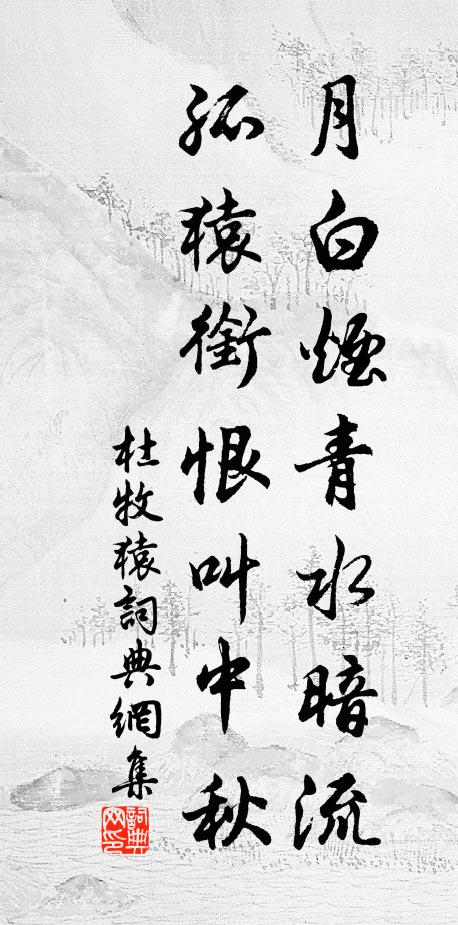 月白煙青水暗流
孤猿銜恨叫中秋
杜牧猿詞典網集
詞典網印